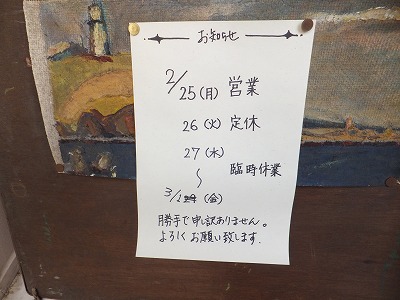 お知らせ
2/25(月) 営業
26(火) 定休
27(水)
〜 臨時休業
3/1(金)
勝手で申し訳ありません。
よろしくお願い致します.